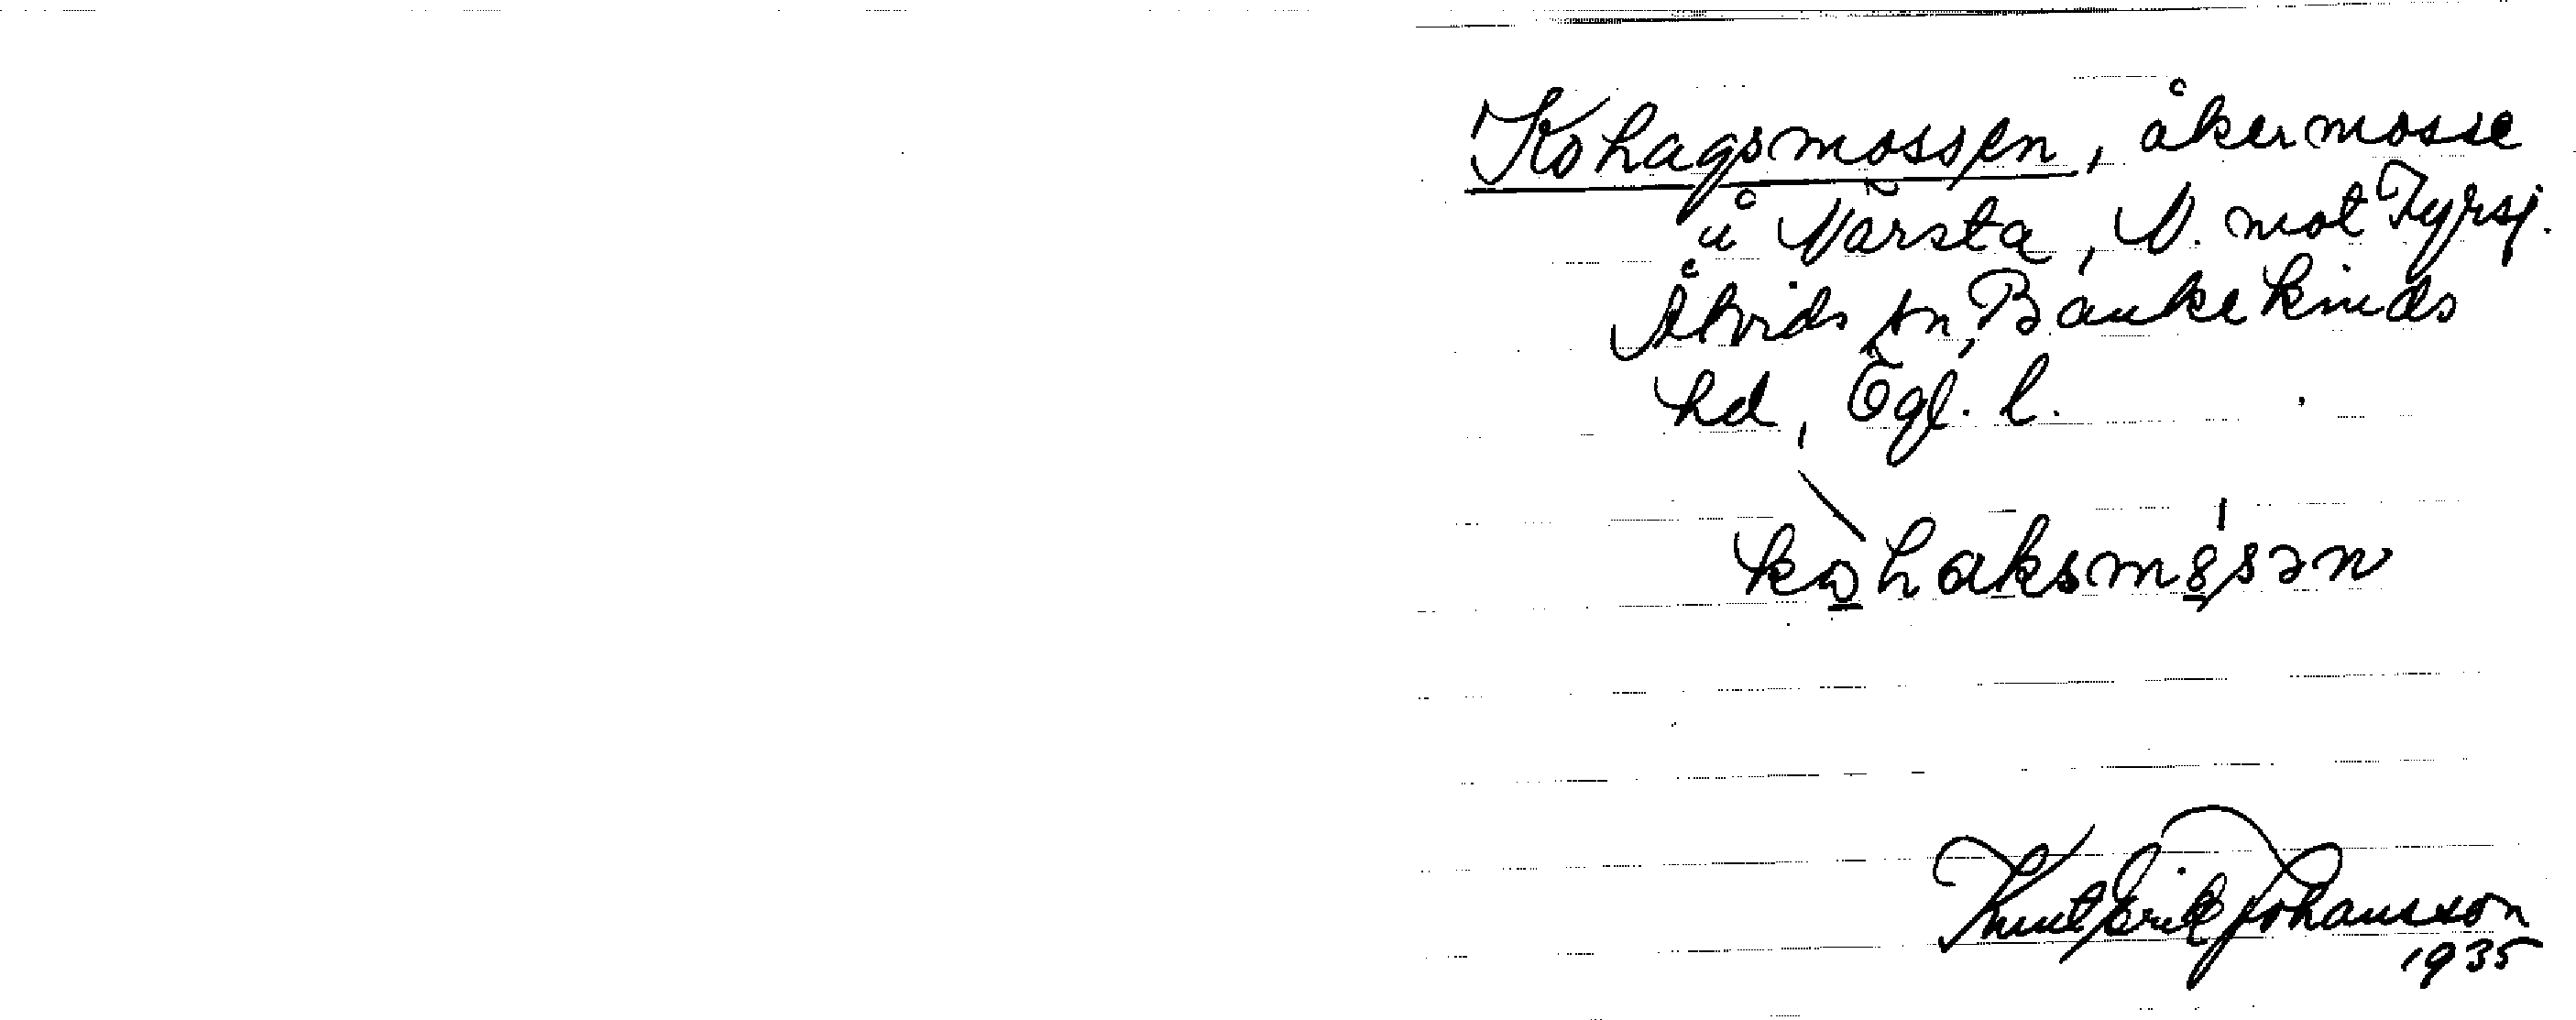 Kohagsmossen, åkermosse
å Närsta, N. mot Tyrsj.
Åtvids sn, Bankekinds
hd, Ögl. l.
kohaksm8sən
Knut Erik Johansson
1935